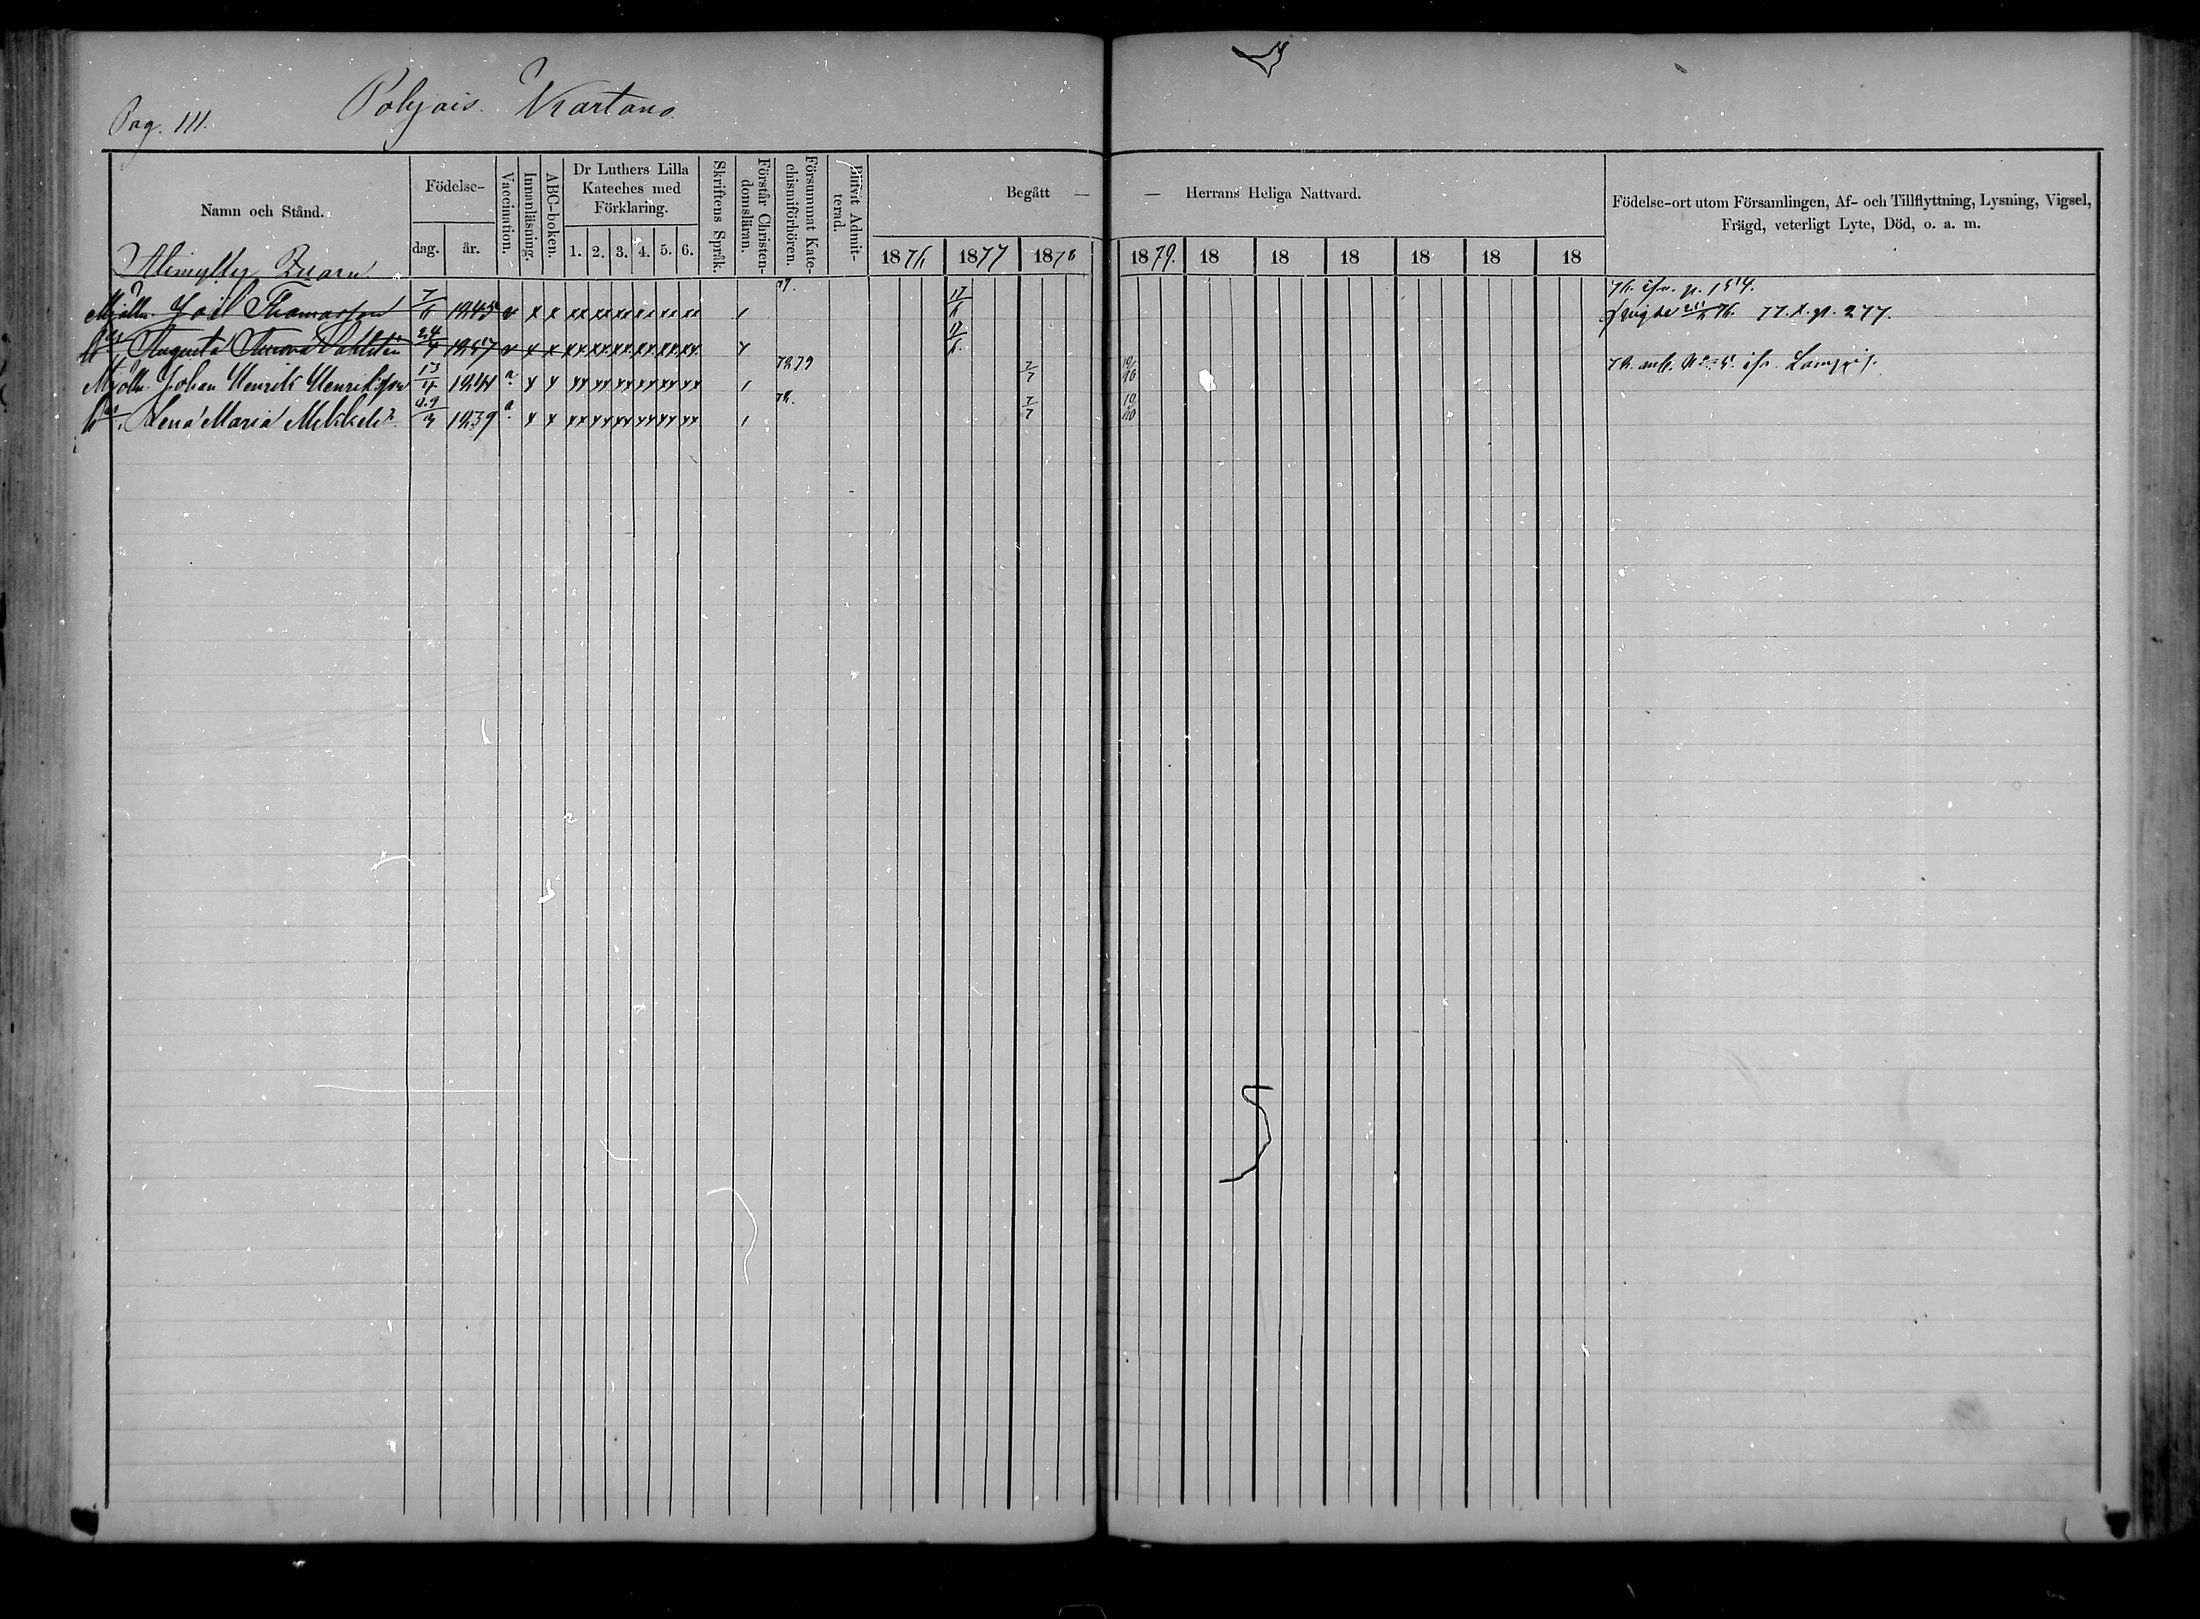 Pag. 111.
Pohjois. Kartano.
Namn och Stånd.
Födelse-
dag. år.
Vaccination.
Innanläsning.
ABC-boken.
Dr Luthers Lilla
Kateches med
Förklaring.
1. 2. 3. 4. 5. 6.
Skriftens Språk.
Förstår Christen-
domsläran.
Försummat Kate-
chismiförhören.
Blifvit Admit-
terad.
Begått — — Herrans Heliga Nattvard.
1876 1877 1878 1879. 18 18 18 18 18 18
Födelse-ort utom Församlingen, Af- och Tillflyttning, Lysning, Vigsel,
Frägd, veterligt Lyte, Död, o. a. m.
Alimylly Quarn
77. 
Mjölln. Joel Thomasson 7/6 1845 v x x xx xx xx xx xx xx / 17/6
Augusta Aurora 24/4 1857 v x x xx xx xx xx xx xx 17/6
77. x. p. 277.
Mjölln. Johan Henrik Henriksson 13/4 1844 x x xx xx xx xx xx xx / 78 79 7/7 19/10
Lena Maria 1839 x x xx xx xx xx xx xx / 78. 7/7 19/10